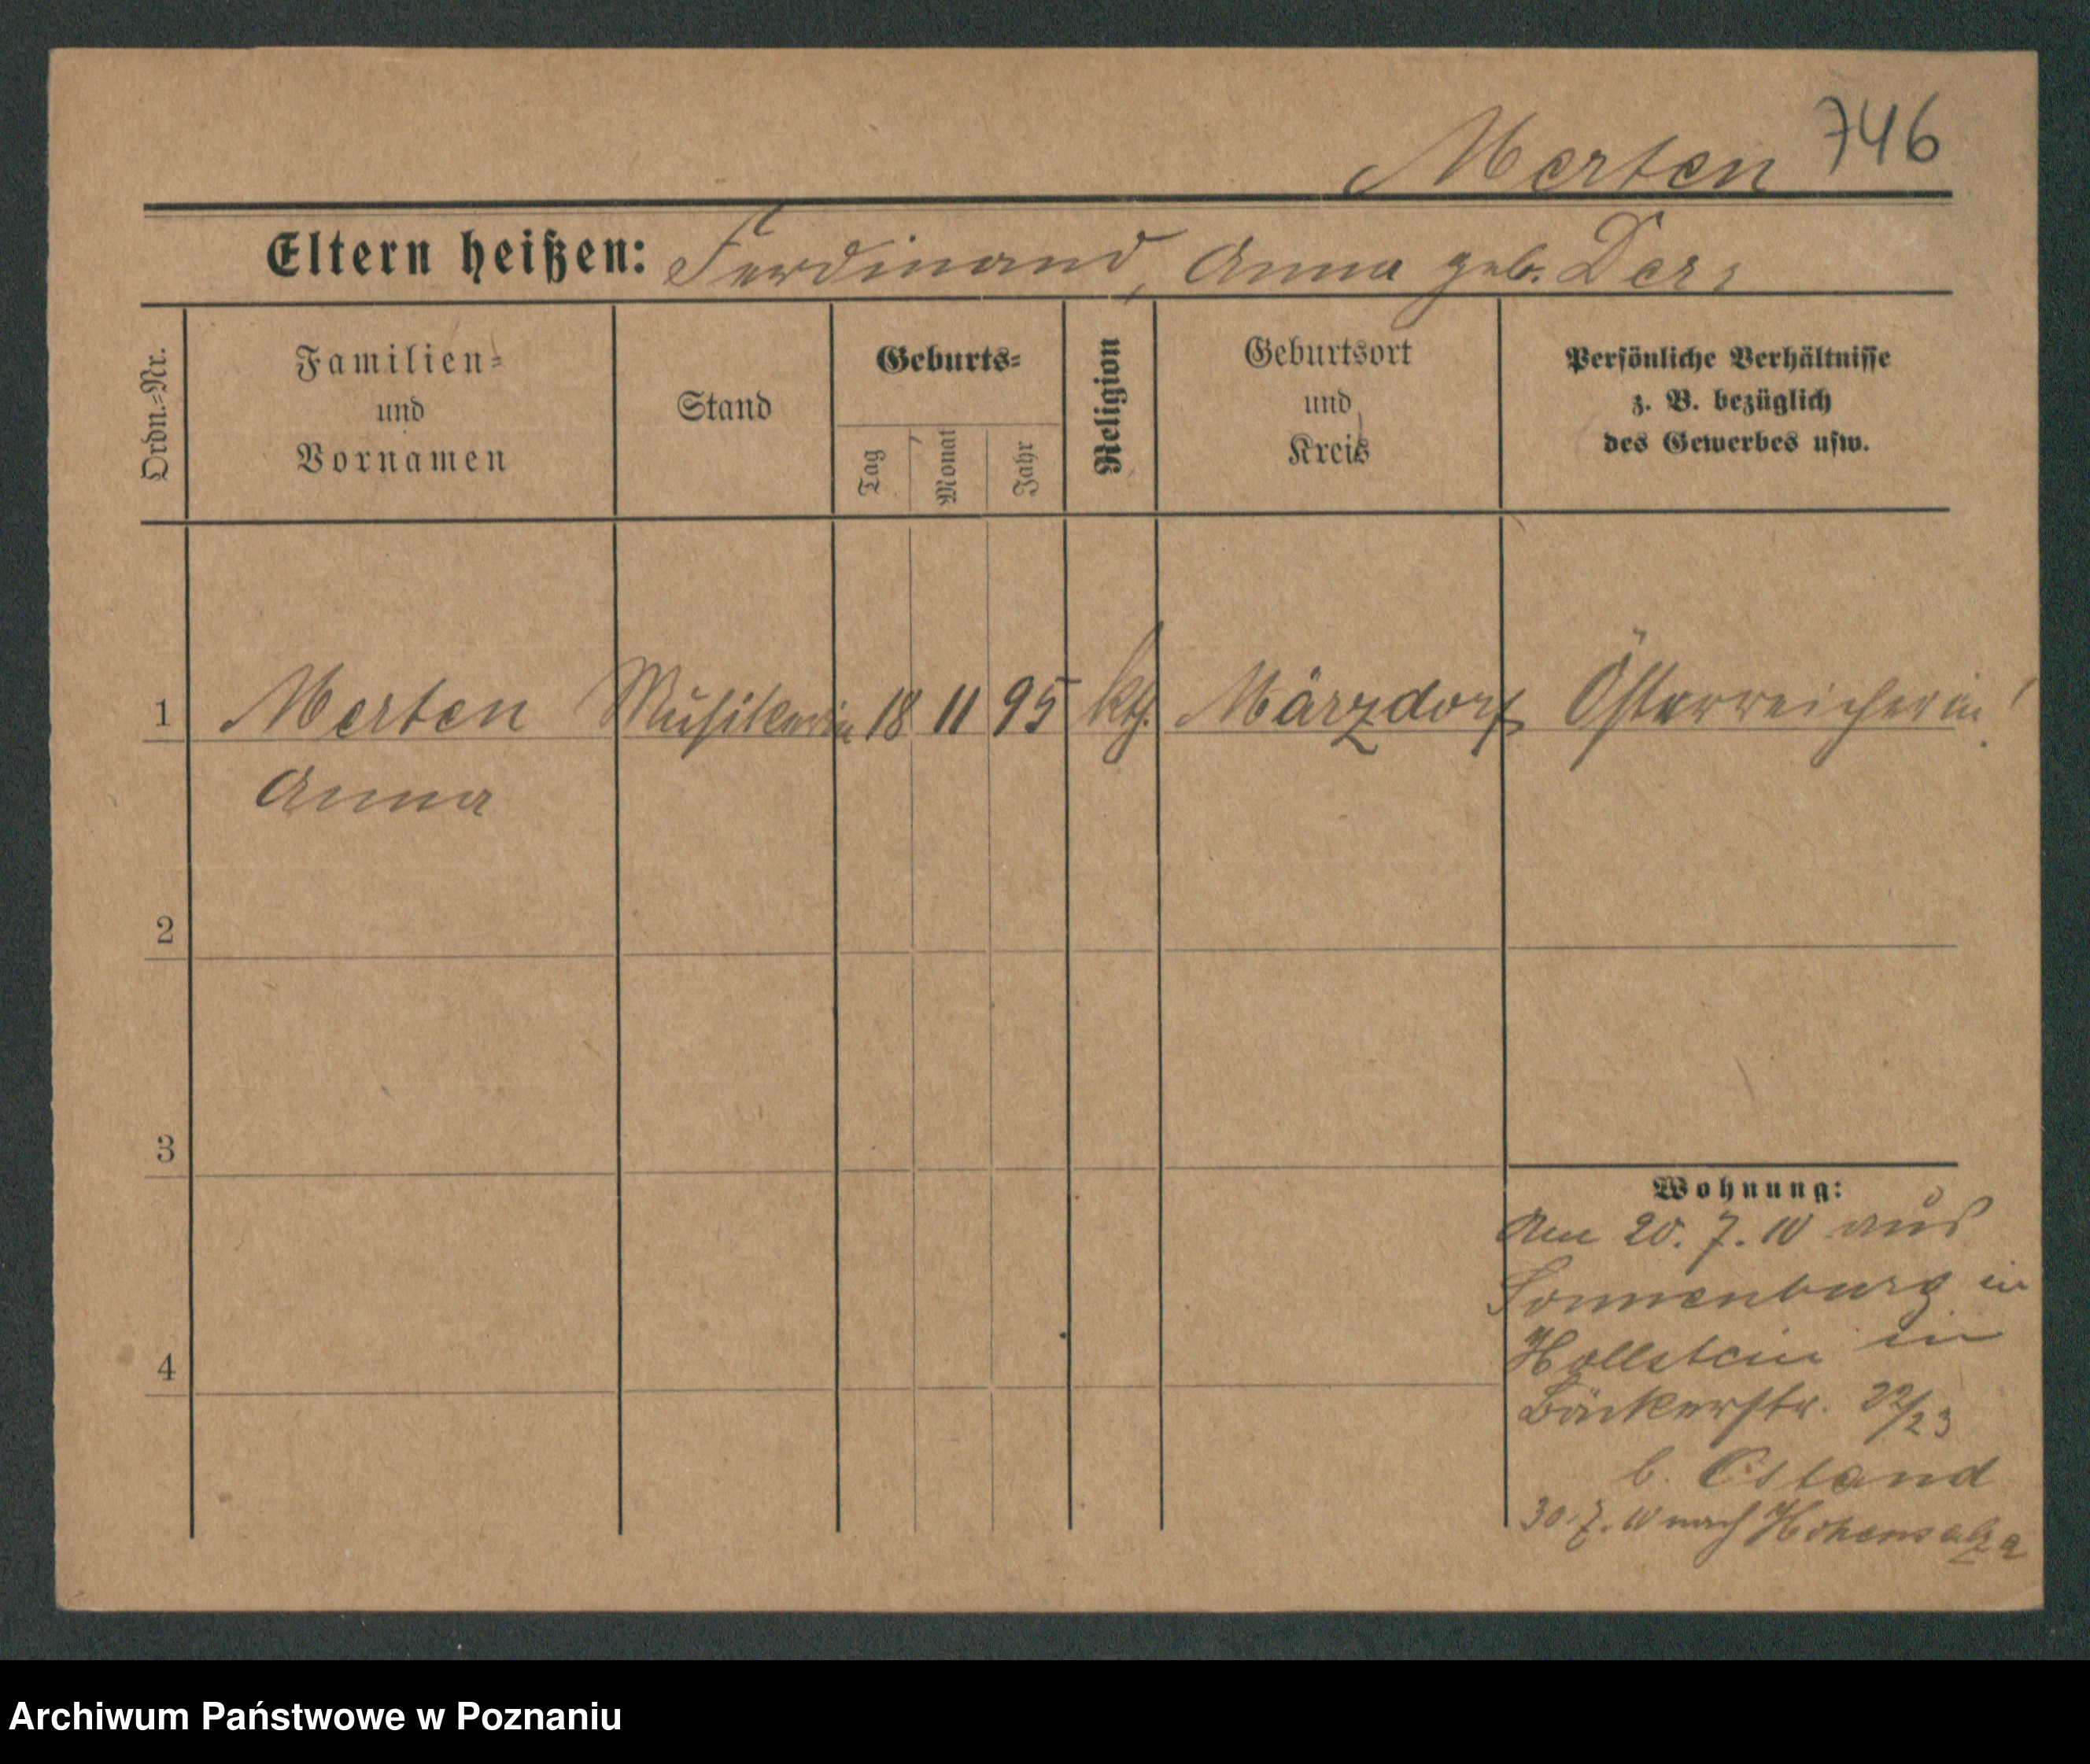 Merten 746
Eltern heißen: Ferdinand, Anna geb. Ders
Ordn.=Nr.
Familien=
und
Vornamen
Stand
Geburts=
Tag
Monat
Jahr
Religion
Geburtsort
und
Kreis
Persönliche Verhältnisse
z. B. bezüglich
des Gewerbes usw.
1 Merten Musikerin 18 11 95 kth. Märzdorf Österreicherin!
Anna
2
3
4
Wohnung:
Am 20. 7. 10 aus
Sonnenburg in
Hollstein in
Bäckerstr. 22/23
b. Ostand
30. 7. 10 nach Hohensalza
Archiwum Państwowe w Poznaniu